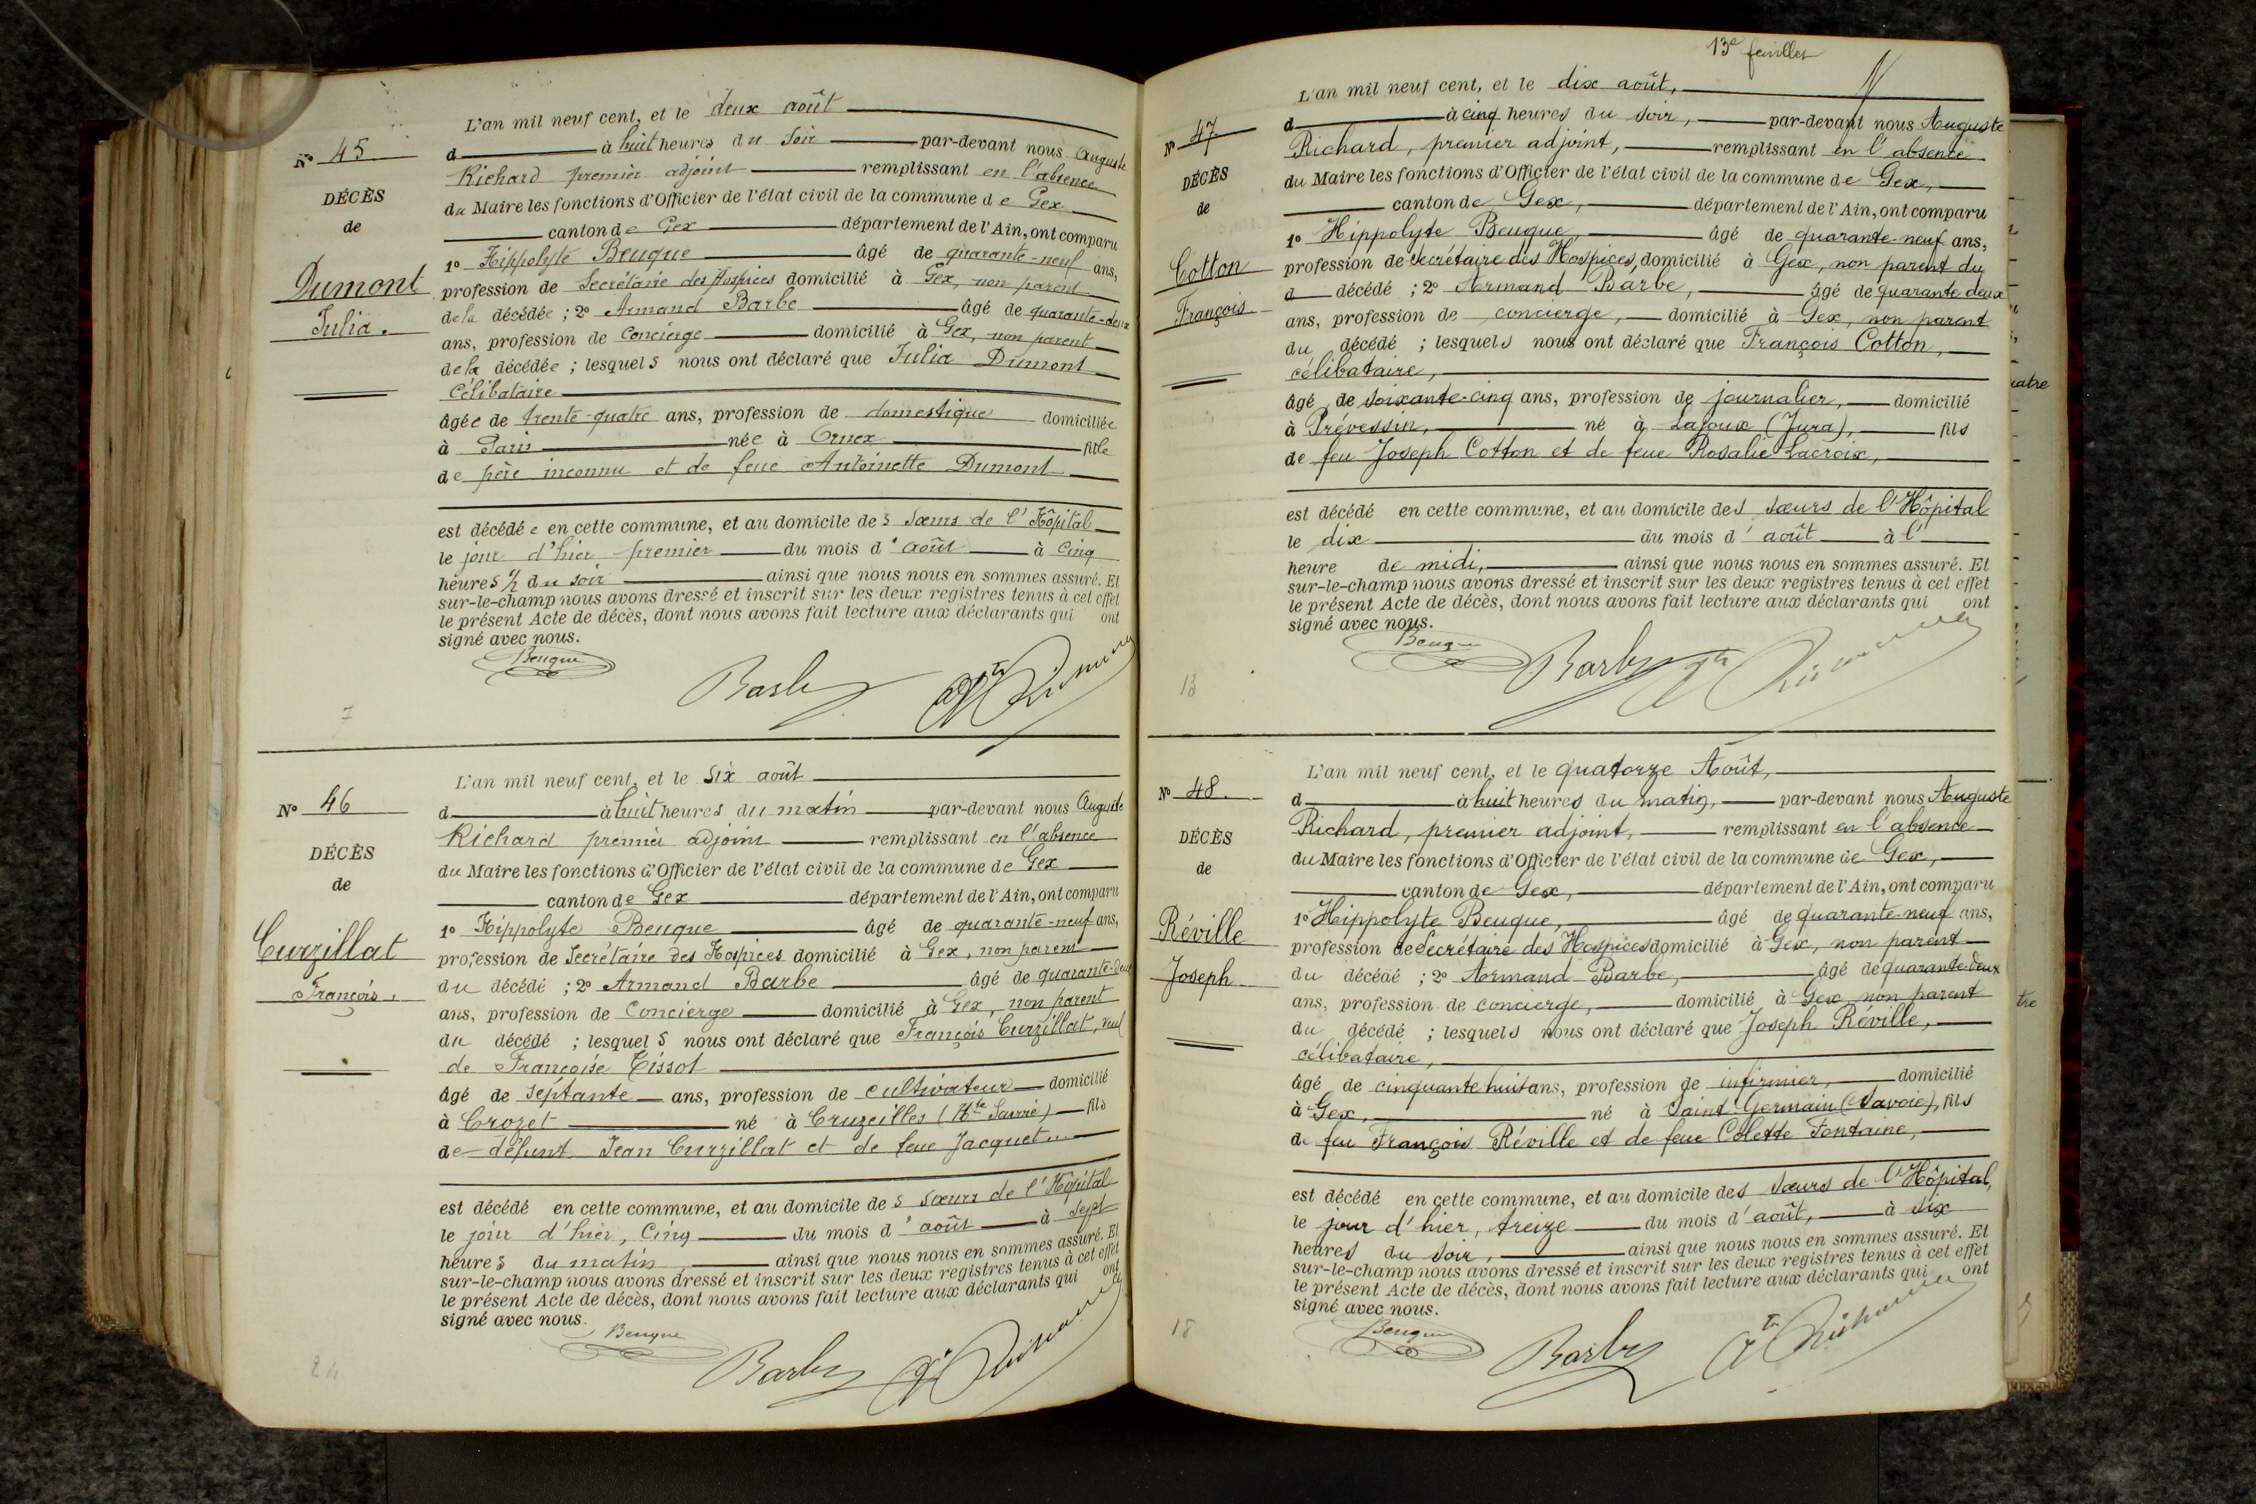 N° 45
DÉCÈS
de
Dumont
Julia.
L'an mil neuf cent, et le deux août
d à huit heures du soir par-devant nous Auguste
Richard premier adjoint remplissant en l'absence
du Maire les fonctions d'Officier de l'état civil de la commune de Gex
canton de Gex département de l'Ain, ont comparu
1° Hippolyte Beuque âgé de quarante-neuf ans,
profession de Secrétaire des Hospices domicilié à Gex, non parent
de la décédée ; 2° Armand Barbe âgé de quarante-deux
ans, profession de Concierge domicilié à Gex, non parent
de la décédée ; lesquels nous ont déclaré que Julia Dumont
Célibataire
âgée de trente-quatre ans, profession de domestique domiciliée
à Paris née à Ornex fille
de père inconnu et de feue Antoinette Dumont
est décédée en cette commune, et au domicile des sœurs de l'Hôpital
le jour d'hier premier du mois d'août à cinq
heures ½ du soir ainsi que nous nous en sommes assuré. Et
sur-le-champ nous avons dressé et inscrit sur les deux registres tenus à cet effet
le présent Acte de décès, dont nous avons fait lecture aux déclarants qui ont
signé avec nous.
Beuque
Barbe
N° 46
DÉCÈS
de
Curzillat
François.
L'an mil neuf cent, et le six août
d à huit heures du matin par-devant nous Auguste
Richard premier adjoint remplissant en l'absence
du Maire les fonctions d'Officier de l'état civil de la commune de Gex
canton de Gex département de l'Ain, ont comparu
1° Hippolyte Beuque âgé de quarante-neuf ans,
profession de Secrétaire des Hospices domicilié à Gex, non parent
du décédé ; 2° Armand Barbe âgé de quarante-deux
ans, profession de Concierge domicilié à Gex, non parent
du décédé ; lesquels nous ont déclaré que François Curzillat, veuf
de Françoise Tissot
âgé de septante ans, profession de cultivateur domicilié
à Crozet né à Cruzeilles (Hte Savoie) fils
de défunt Jean Curzillat et de feue Jacquet...
est décédé en cette commune, et au domicile des sœurs de l'Hôpital
le jour d'hier, cinq du mois d'août à sept
heures du matin ainsi que nous nous en sommes assuré. Et
sur-le-champ nous avons dressé et inscrit sur les deux registres tenus à cet effet
le présent Acte de décès, dont nous avons fait lecture aux déclarants qui ont
signé avec nous.
Beuque
Barbe
13e feuillet
N° 47
DÉCÈS
de
Cotton
François
L'an mil neuf cent, et le dix août,
d à cinq heures du soir, par-devant nous Auguste
Richard, premier adjoint, remplissant en l'absence
du Maire les fonctions d'Officier de l'état civil de la commune de Gex,
canton de Gex, département de l'Ain, ont comparu
1° Hippolyte Beuque, âgé de quarante-neuf ans,
profession de Secrétaire des Hospices, domicilié à Gex, non parent du
d décédé ; 2° Armand Barbe, âgé de quarante-deux
ans, profession de concierge, domicilié à Gex, non parent
du décédé ; lesquels nous ont déclaré que François Cotton,
célibataire,
âgé de soixante-cinq ans, profession de journalier, domicilié
à Prévessin, né à Lajoux (Jura), fils
de feu Joseph Cotton et de feue Rosalie Lacroix,
est décédé en cette commune, et au domicile des sœurs de l'Hôpital
le dix du mois d'août à l'
heure de midi, ainsi que nous nous en sommes assuré. Et
sur-le-champ nous avons dressé et inscrit sur les deux registres tenus à cet effet
le présent Acte de décès, dont nous avons fait lecture aux déclarants qui ont
signé avec nous.
Beuque
Barbe
13
N° 48.
DÉCÈS
de
Réville
Joseph
L'an mil neuf cent, et le quatorze Août,
d à huit heures du matin, par-devant nous Auguste
Richard, premier adjoint, remplissant en l'absence
du Maire les fonctions d'Officier de l'état civil de la commune de Gex,
canton de Gex, département de l'Ain, ont comparu
1° Hippolyte Beuque, âgé de quarante-neuf ans,
profession de Secrétaire des Hospices domicilié à Gex, non parent
du décédé ; 2° Armand Barbe, âgé de quarante-deux
ans, profession de concierge, domicilié à Gex, non parent
du décédé ; lesquels nous ont déclaré que Joseph Réville,
célibataire,
âgé de cinquante huit ans, profession de infirmier, domicilié
à Gex, né à Saint-Germain (Savoie), fils
de feu François Réville et de feue Colette Fontaine,
est décédé en cette commune, et au domicile des sœurs de l'Hôpital,
le jour d'hier, treize du mois d'août, à six
heures du soir, ainsi que nous nous en sommes assuré. Et
sur-le-champ nous avons dressé et inscrit sur les deux registres tenus à cet effet
le présent Acte de décès, dont nous avons fait lecture aux déclarants qui ont
signé avec nous.
Beuque
Barbe
18